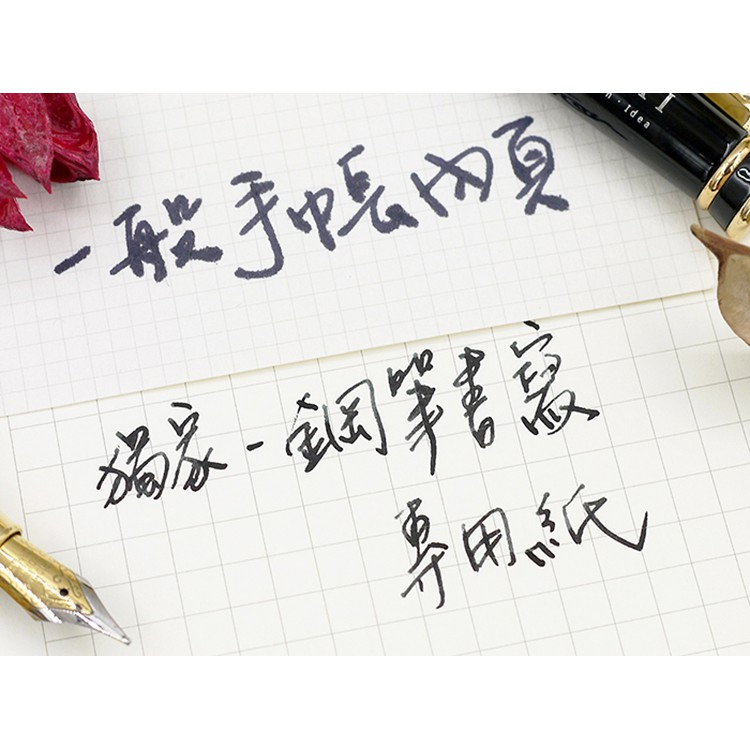 一般手帳內頁
獨家-鋼筆書寫
專用紙
· Idea